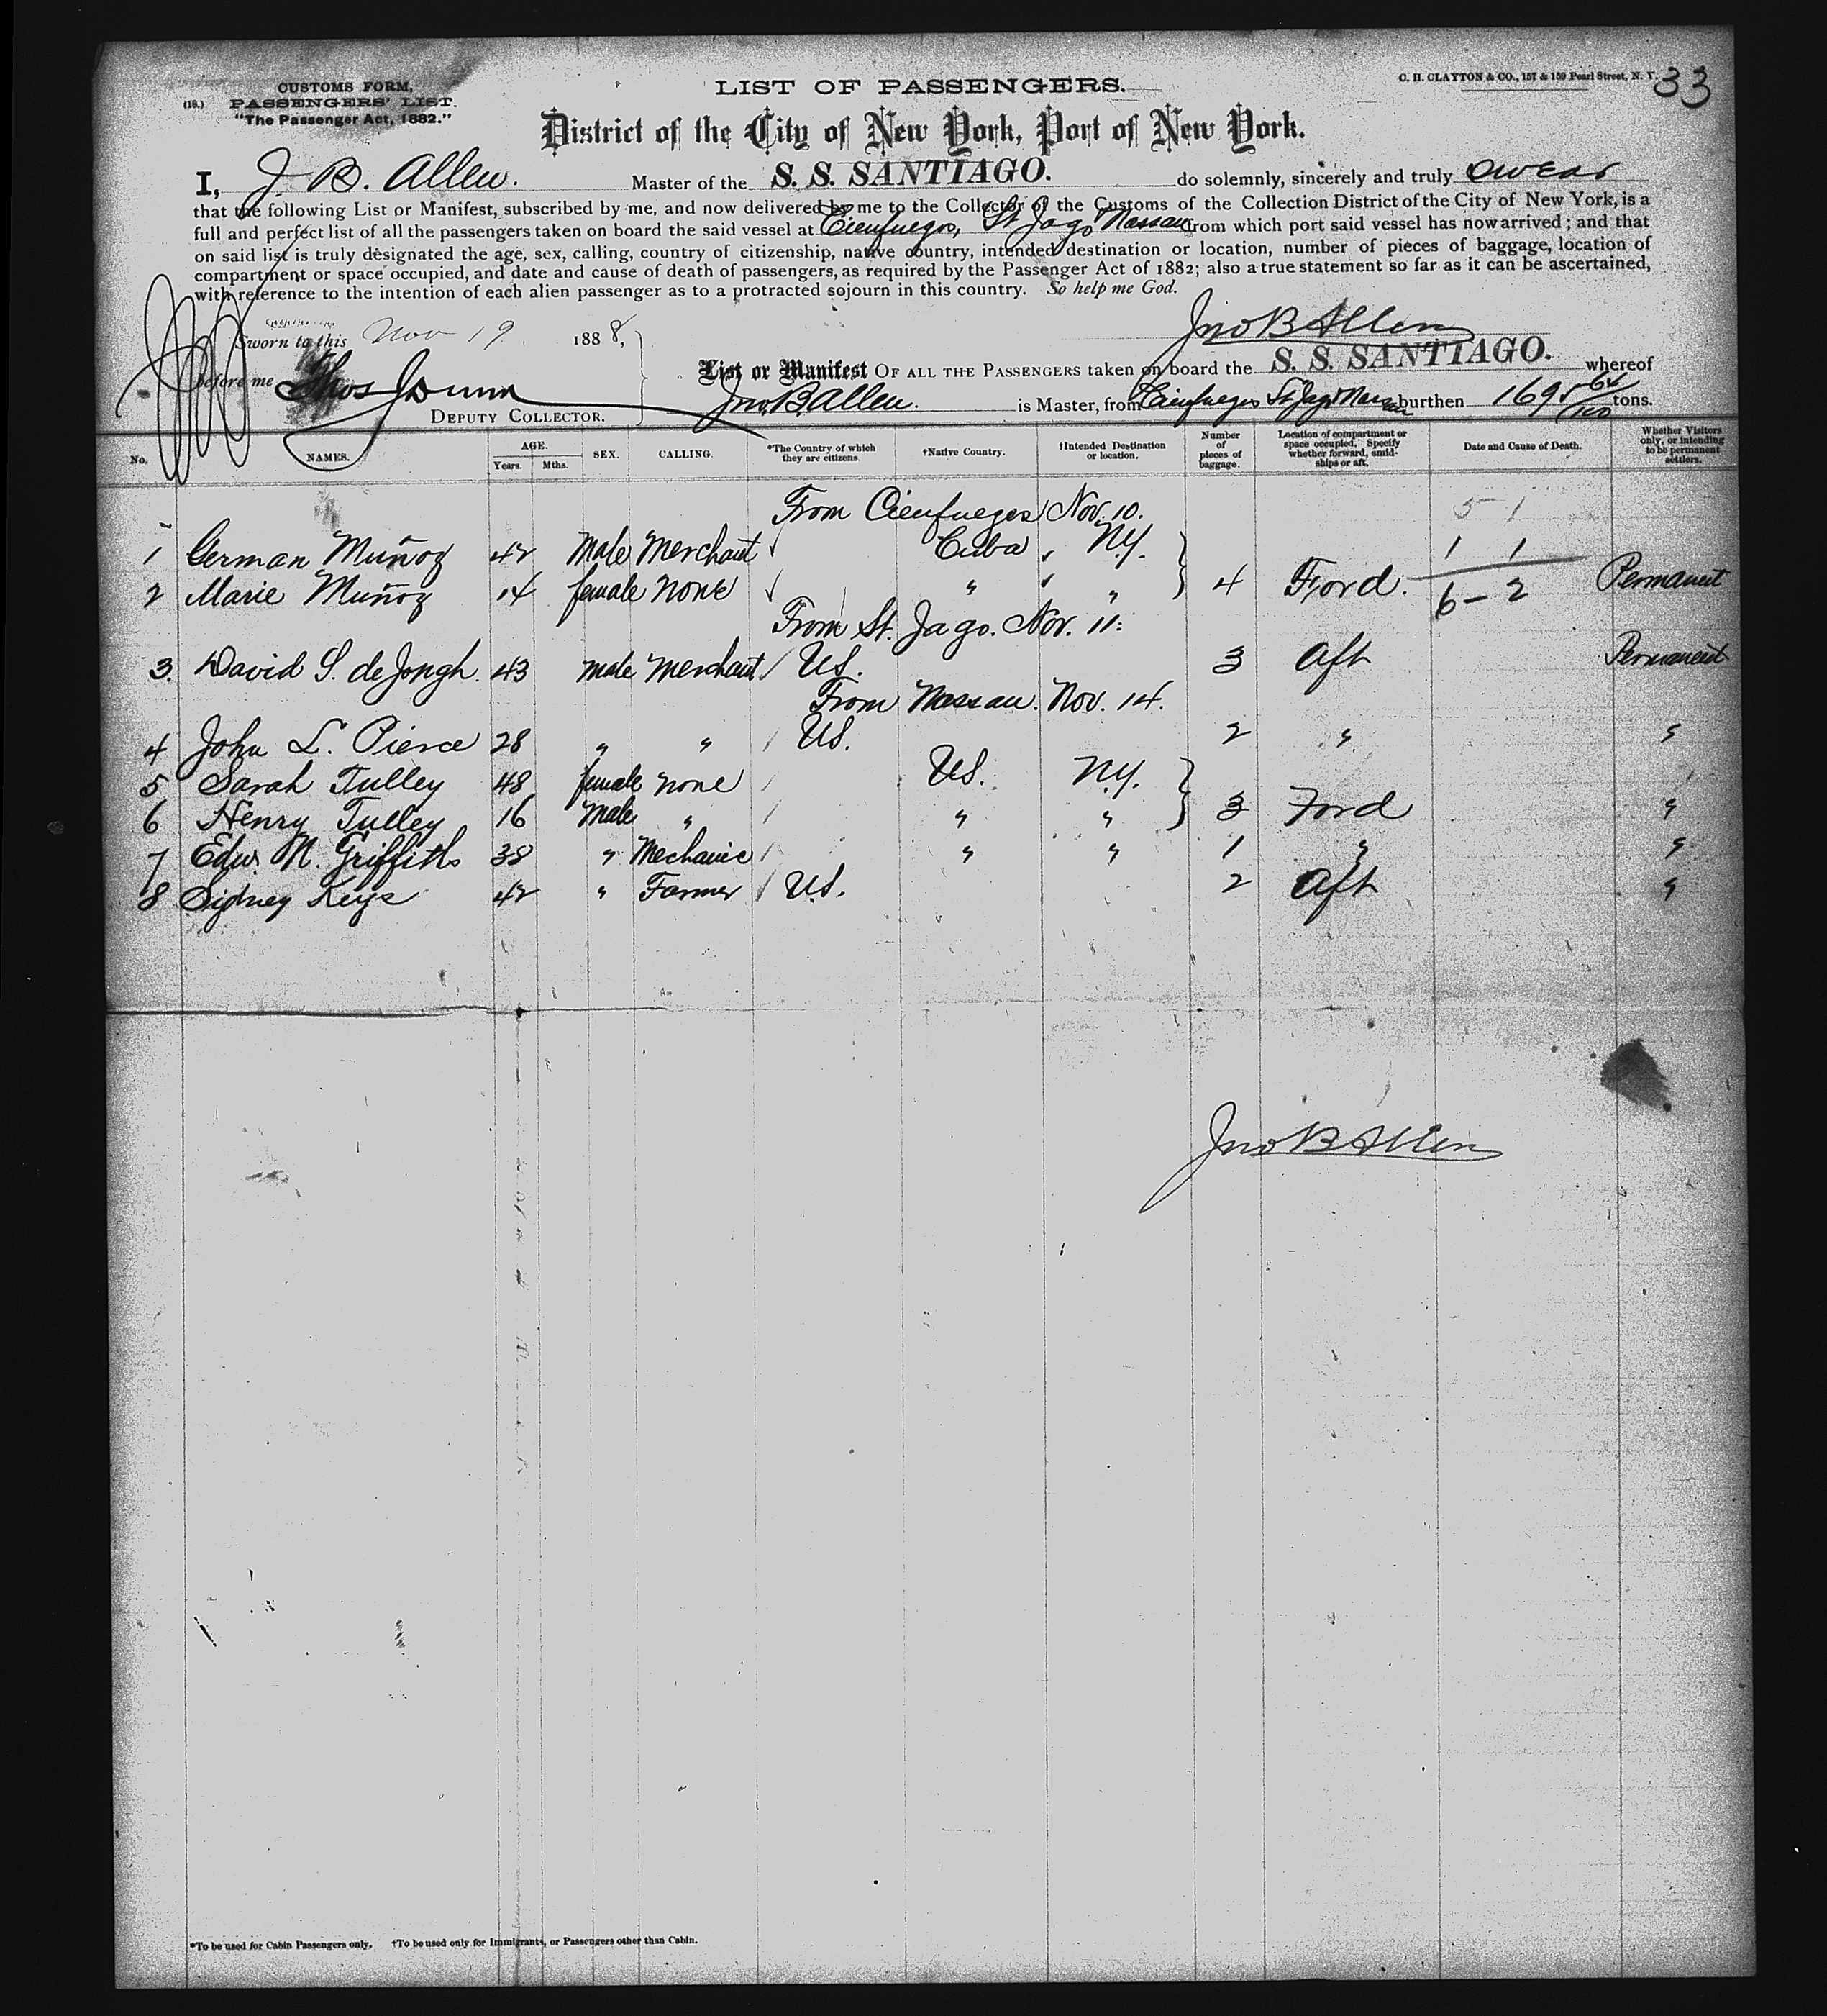 C. H. CLAYTON & CO., 157 & 159 Pearl Street, N. Y.
33
CUSTOMS FORM,
(18.) PASSENGERS' LIST.
"The Passenger Act, 1882."
LIST OF PASSENGERS.
District of the City of New York, Port of New York.
I, J. B. Allen. Master of the S. S. SANTIAGO. do solemnly, sincerely and truly swear
that the following List or Manifest, subscribed by me, and now delivered by me to the Collector of the Customs of the Collection District of the City of New York, is a
full and perfect list of all the passengers taken on board the said vessel at Cienfuegos, St Jago Nassau from which port said vessel has now arrived; and that
on said list is truly designated the age, sex, calling, country of citizenship, native country, intended destination or location, number of pieces of baggage, location of
compartment or space occupied, and date and cause of death of passengers, as required by the Passenger Act of 1882; also a true statement so far as it can be ascertained,
with reference to the intention of each alien passenger as to a protracted sojourn in this country. So help me God.
Jno B Allen
Sworn to this Nov 19 1888,
before me Thos J Dunn
DEPUTY COLLECTOR.
List or Manifest OF ALL THE PASSENGERS taken on board the S. S. SANTIAGO. whereof
Jno. B Allen. is Master, from Cienfuegos St Jago Nassau burthen 1695 64/100 tons.
No. NAMES. AGE. Years. Mths. SEX. CALLING. *The Country of which they are citizens. †Native Country. †Intended Destination or location. Number of pieces of baggage. Location of compartment or space occupied. Specify whether forward, amidships or aft. Date and Cause of Death. Whether Visitors only, or intending to be permanent settlers.
From Cienfuegos Nov. 10. 5 1
1 German Muñoz 42 Male Merchant Cuba NY. 1 1
2 Marie Muñoz 14 female None " " 4 Ford. 6 - 2 Permanent
From St. Jago. Nov. 11.
3. David S. de Jongh. 43 Male Merchant US. 3 Aft Permanent
From Nassau. Nov. 14.
4 John L. Pierce 28 " " US. 2 " "
5 Sarah Tulley 48 female none US. NY.
6 Henry Tulley 16 Male " " " 3 Ford "
7 Edw. N. Griffiths 38 " Mechanic " " 1 " "
8 Sidney Keys 42 " Farmer US. 2 Aft "
Jno B Allen
*To be used for Cabin Passengers only. †To be used only for Immigrants, or Passengers other than Cabin.